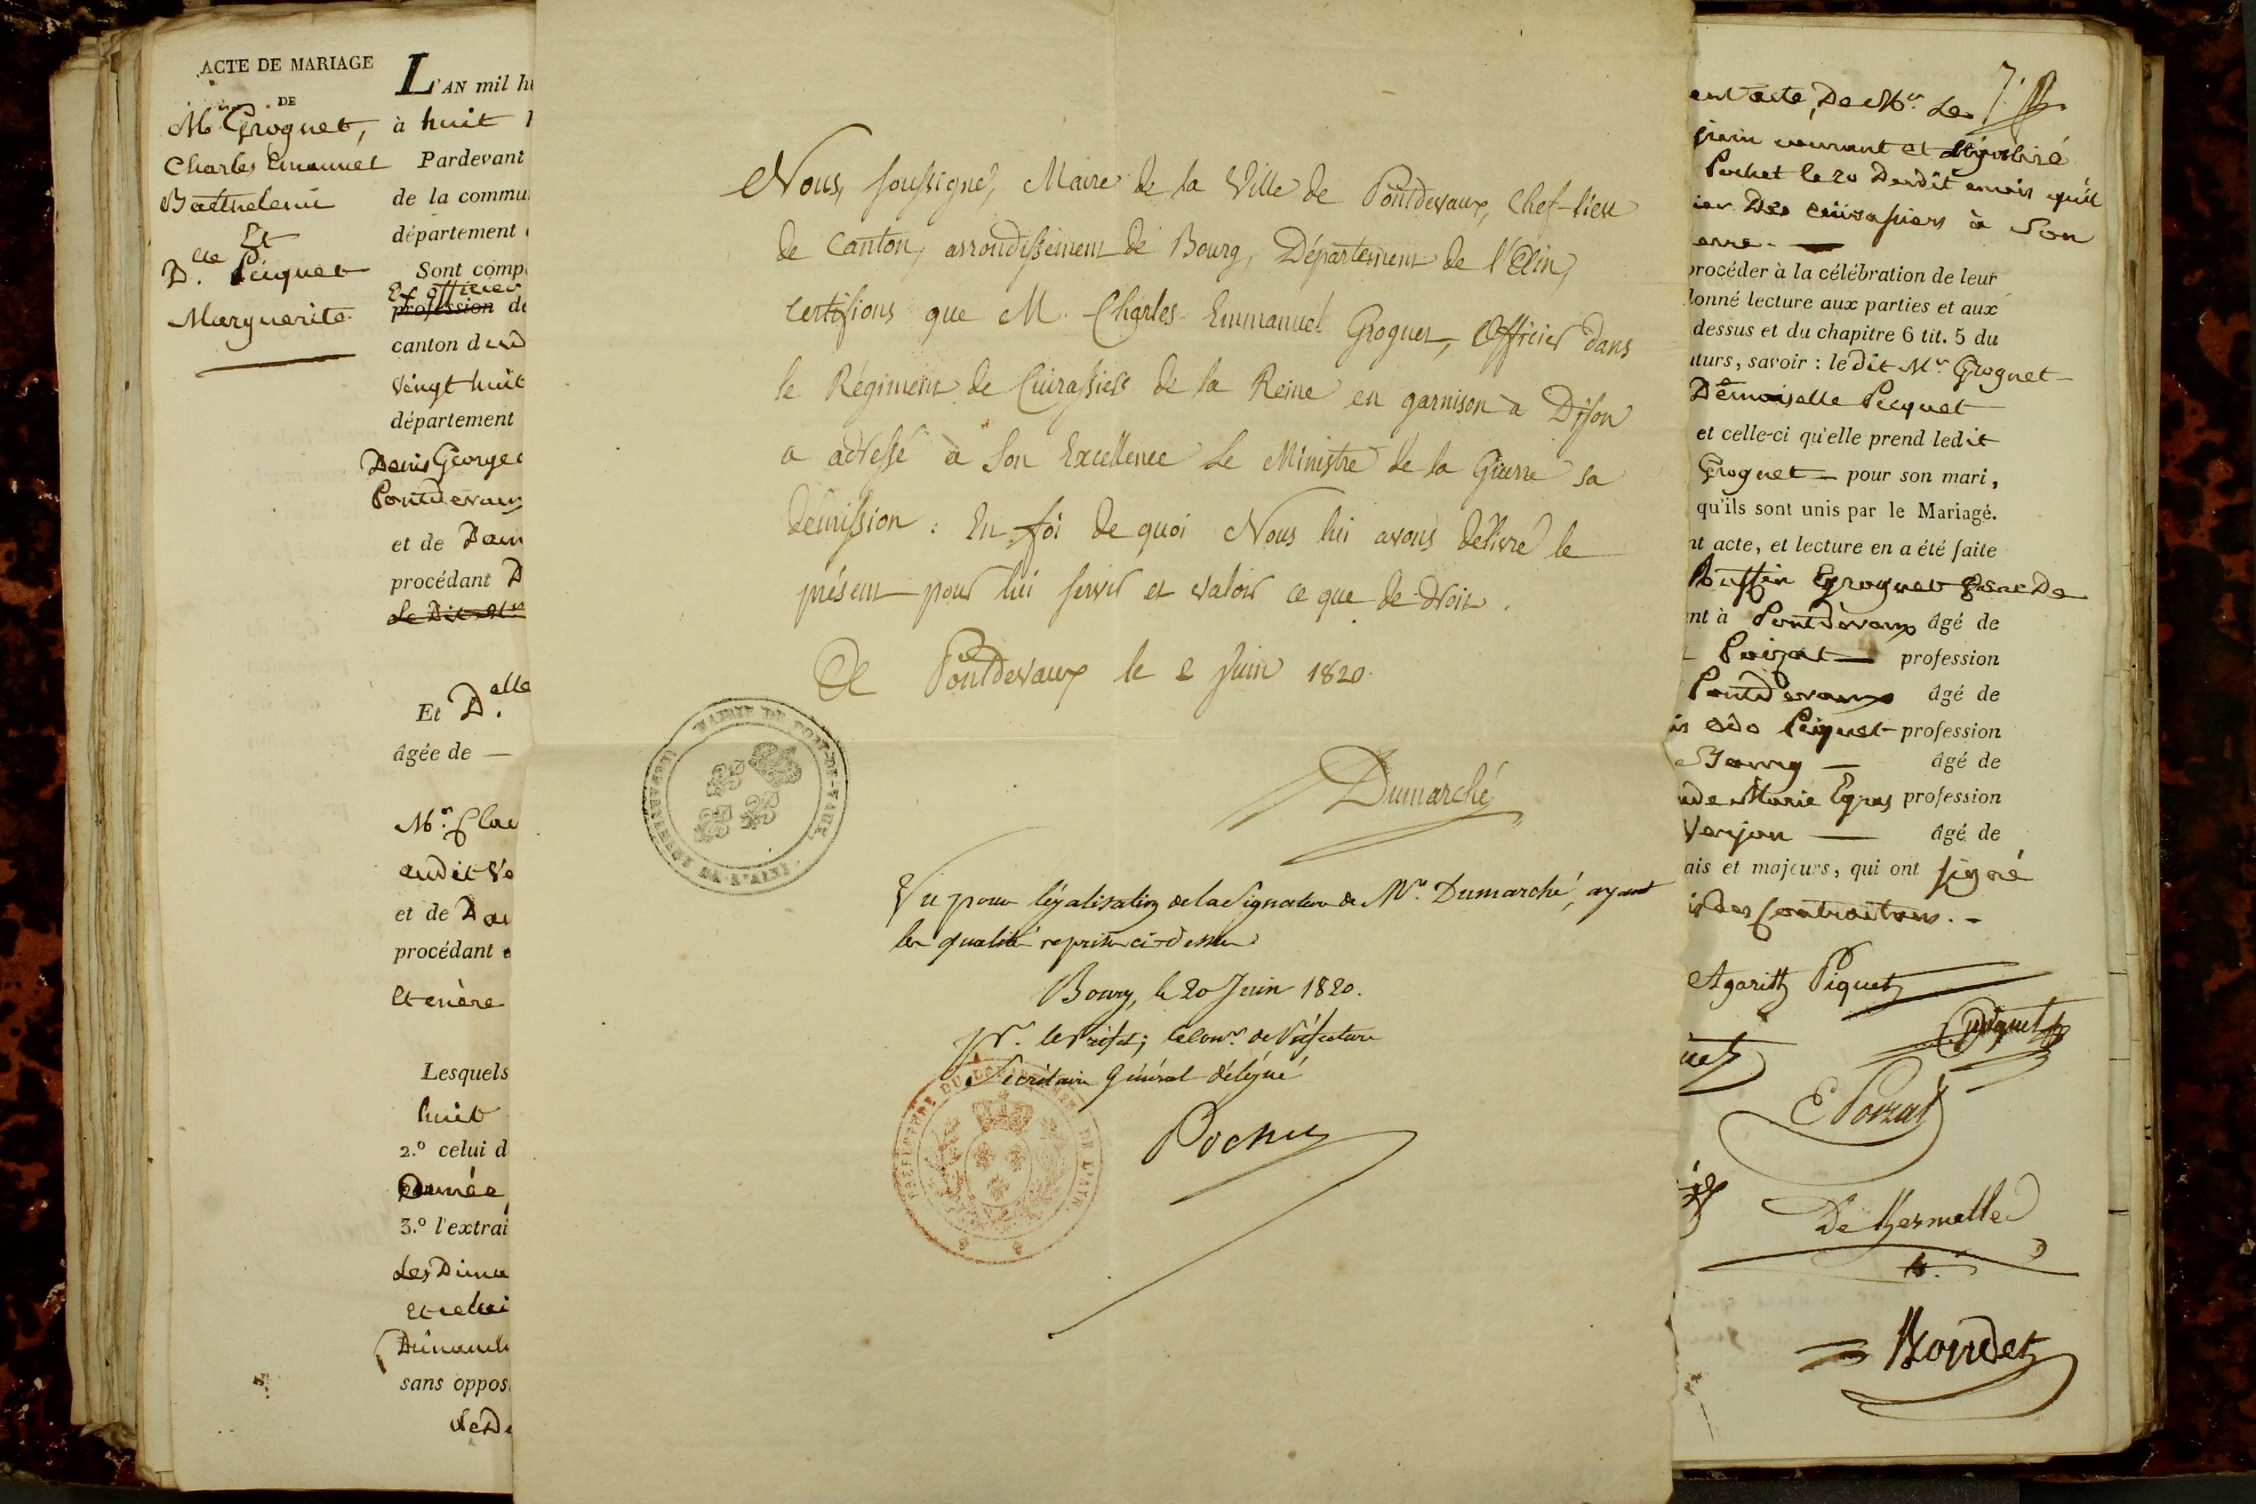 ACTE DE MARIAGE
DE
Mr Groguet,
Charles Emanuel
Barthelemi
Et
D.lle Picquet
Marguerite
L'AN mil hu
à huit
Pardevant
de la commu
département
Sont comp
Ex officier
profession de
canton d
vingt huit
département
Denis George
Pontdevaux
et de Dam
procédant D
Et D.elle
âgée de —
Mr. Clau
audit Ve
et de Da
procédant
Et mère
Lesquels
huit
2.° celui d
3.° l'extrai
les Diman
Et celui
Dimanche
sans oppos
Nous, soussigné, Maire de la Ville de Pontdevaux, Chef-lieu
de Canton, arrondissement de Bourg, Département de l'Ain,
certifions que M. Charles Emmanuel Groguet, Officier dans
le Régiment de Cuirassiers de la Reine en garnison à Dijon
a adressé à Son Excellence Le Ministre de la Guerre sa
démission : En foi de quoi Nous lui avons délivré le
présent pour lui servir et valoir ce que de droit.
A Pontdevaux le 2 Juin 1820.
MAIRIE DE PONT-DE-VAUX
DÉPARTEMENT DE L'AIN
Dumarché
Vu pour légalisation de la signature de Mr. Dumarché, ayant
les qualités reprises ci-dessus
Bourg, le 20 Juin 1820.
Pr. le Préfet; le Conr. de Préfecture
Secrétaire Général délégué
PRÉFECTURE DU DÉPARTEMENT DE L'AIN
Pochet
7.
juin courant et légalisé
Pochet le 20 Dudit mois qu'il
ier Des cuirassiers à Son
erre. —
procéder à la célébration de leur
donné lecture aux parties et aux
dessus et du chapitre 6 tit. 5 du
uturs, savoir : le dit Mr. Groguet
Demoiselle Picquet
et celle-ci qu'elle prend ledit
Groguet — pour son mari,
qu'ils sont unis par le Mariage.
nt acte, et lecture en a été faite
Groguet Pere De
nt à Pontdevaux âgé de
Poizat — profession
Pontdevaux âgé de
Piquet — profession
Bourg — âgé de
ude Marie Gros profession
Verjon — âgé de
ais et majeurs, qui ont signé
Piquet
E Poizat